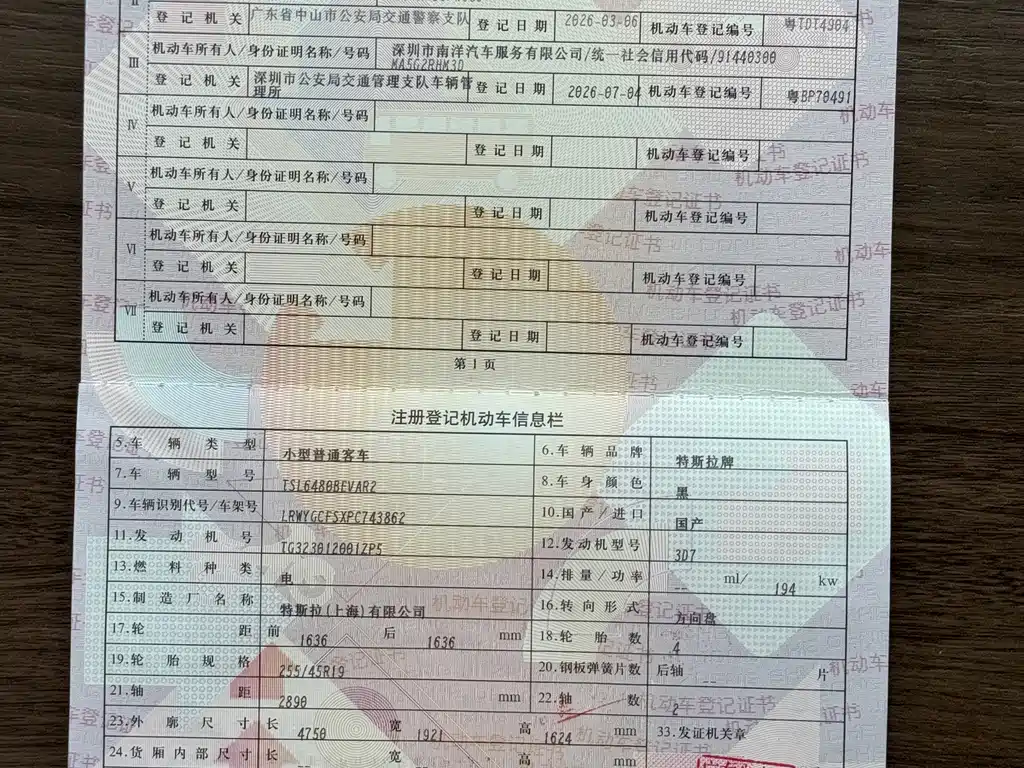 II
登记机关 广东省中山市公安局交通警察支队 登记日期 2026-03-06 机动车登记编号 粤TDT4904
III 机动车所有人/身份证明名称/号码 深圳市南洋汽车服务有限公司/统一社会信用代码/91440300
MA5G2RHM3D
登记机关 深圳市公安局交通管理支队车辆管理所 登记日期 2026-07-04 机动车登记编号 粤BP70491
IV 机动车所有人/身份证明名称/号码
登记机关 登记日期 机动车登记编号
V 机动车所有人/身份证明名称/号码
登记机关 登记日期 机动车登记编号
VI 机动车所有人/身份证明名称/号码
登记机关 登记日期 机动车登记编号
VII 机动车所有人/身份证明名称/号码
登记机关 登记日期 机动车登记编号
第1页
注册登记机动车信息栏
5.车辆类型 小型普通客车 6.车辆品牌 特斯拉牌
7.车辆型号 TSL6480BEVAR2 8.车身颜色 黑
9.车辆识别代号/车架号 LRWYGCFSXPC743862 10.国产/进口 国产
11.发动机号 TG323012001ZP5 12.发动机型号 3D7
13.燃料种类 电 14.排量/功率 -- ml/ 194 kw
15.制造厂名称 特斯拉(上海)有限公司 16.转向形式 方向盘
17.轮距 前 1636 后 1636 mm 18.轮胎数 4
19.轮胎规格 255/45R19 20.钢板弹簧片数 后轴 -- 片
21.轴距 2890 mm 22.轴数 2
23.外廓尺寸 长 4750 宽 1921 高 1624 mm 33.发证机关章
24.货厢内部尺寸 长 宽 高 mm